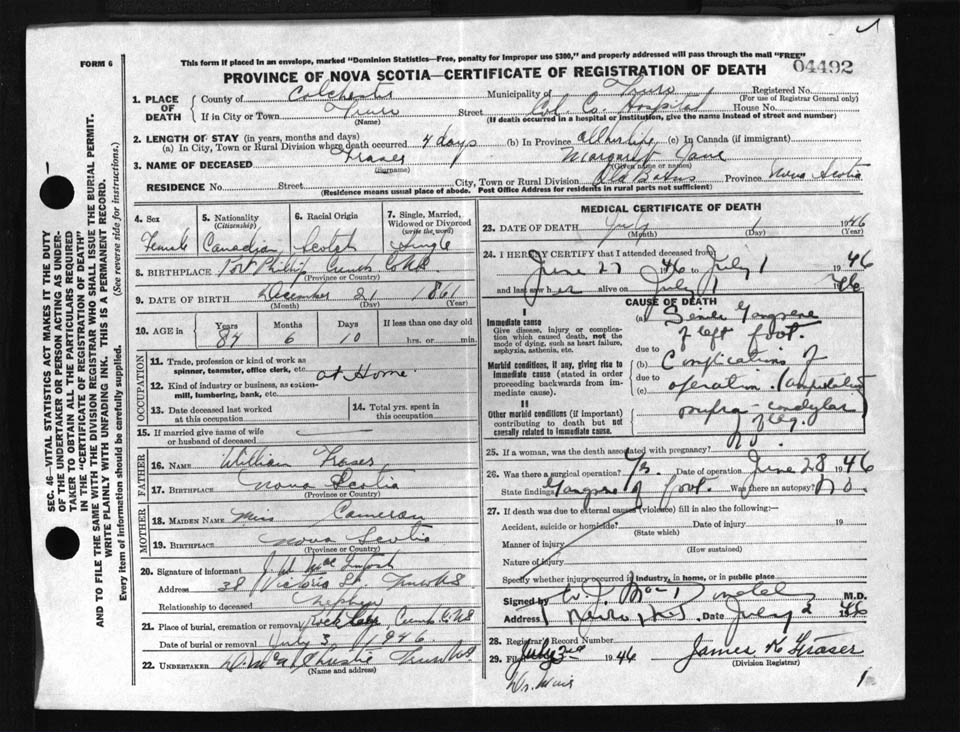 FORM 6
This form if placed in an envelope, marked "Dominion Statistics—Free, penalty for improper use $300," and properly addressed will pass through the mail "FREE"
PROVINCE OF NOVA SCOTIA—CERTIFICATE OF REGISTRATION OF DEATH
04492
1. PLACE OF DEATH
County of Colchester Municipality of Truro Registered No.
(For use of Registrar General only)
If in City or Town Truro Street Col. Co. Hospital House No.
(Name) (If death occurred in a hospital or institution, give the name instead of street and number)
2. LENGTH OF STAY (in years, months and days)
(a) In City, Town or Rural Division where death occurred 4 days (b) In Province all her life (c) In Canada (if immigrant)
3. NAME OF DECEASED Fraser Margaret Jane
(Surname) (Given name or names)
RESIDENCE No. Street City, Town or Rural Division Province Nova Scotia
(Residence means usual place of abode. Post Office Address for residents in rural parts not sufficient)
4. Sex
Female
5. Nationality
(Citizenship)
Canadian
6. Racial Origin
Scotch
7. Single, Married, Widowed or Divorced
(write the word)
Single
8. BIRTHPLACE Port Philip, Cumb. Co. N.S.
(Province or Country)
9. DATE OF BIRTH December 21 1861
(Month) (Day) (Year)
10. AGE in
Years Months Days If less than one day old
84 6 10 hrs. or min.
OCCUPATION
11. Trade, profession or kind of work as spinner, teamster, office clerk, etc. at Home.
12. Kind of industry or business, as cotton-mill, lumbering, bank, etc.
13. Date deceased last worked at this occupation
14. Total yrs. spent in this occupation
15. If married give name of wife or husband of deceased —
FATHER
16. NAME William Fraser
17. BIRTHPLACE Nova Scotia
(Province or Country)
MOTHER
18. MAIDEN NAME Miss Cameron
19. BIRTHPLACE Nova Scotia
(Province or Country)
20. Signature of informant J. W.
Address 38 Victoria St. Truro N.S.
Relationship to deceased Nephew
21. Place of burial, cremation or removal Cumb. Co. N.S.
Date of burial or removal July 3, 1946.
22. UNDERTAKER Truro N.S.
(Name and address)
MEDICAL CERTIFICATE OF DEATH
23. DATE OF DEATH July 1 1946
(Month) (Day) (Year)
24. I HEREBY CERTIFY that I attended deceased from
June 27 1946 to July 1 1946
and last saw her alive on July 1 1946
CAUSE OF DEATH
I
Immediate cause
Give disease, injury or complication which caused death, not the mode of dying, such as heart failure, asphyxia, asthenia, etc.
Morbid conditions, if any, giving rise to immediate cause (stated in order proceeding backwards from immediate cause).
II
Other morbid conditions (if important) contributing to death but not causally related to immediate cause.
(a) Senile Gangrene
of left foot.
due to
(b) Complications of
due to
(c) operation. (amputation
supra-condylar
of leg.
25. If a woman, was the death associated with pregnancy? No.
26. Was there a surgical operation? Yes. Date of operation June 28 1946
State findings Gangrene of foot. Was there an autopsy? No.
27. If death was due to external causes (violence) fill in also the following:—
Accident, suicide or homicide? Date of injury 19
(State which)
Manner of injury
(How sustained)
Nature of injury
Specify whether injury occurred in industry, in home, or in public place
Signed by M.D.
Address Truro, N.S. Date July 2 1946
28. Registrar's Record Number
29. Filed July 3rd 1946 James K Fraser
(Division Registrar)
Dr. Muir
SEC. 46—VITAL STATISTICS ACT MAKES IT THE DUTY OF THE UNDERTAKER OR PERSON ACTING AS UNDERTAKER TO OBTAIN ALL THE PARTICULARS REQUIRED IN THE "CERTIFICATE OF REGISTRATION OF DEATH" AND TO FILE THE SAME WITH THE DIVISION REGISTRAR WHO SHALL ISSUE THE BURIAL PERMIT.
WRITE PLAINLY WITH UNFADING INK. THIS IS A PERMANENT RECORD.
Every item of information should be carefully supplied. (See reverse side for instructions.)